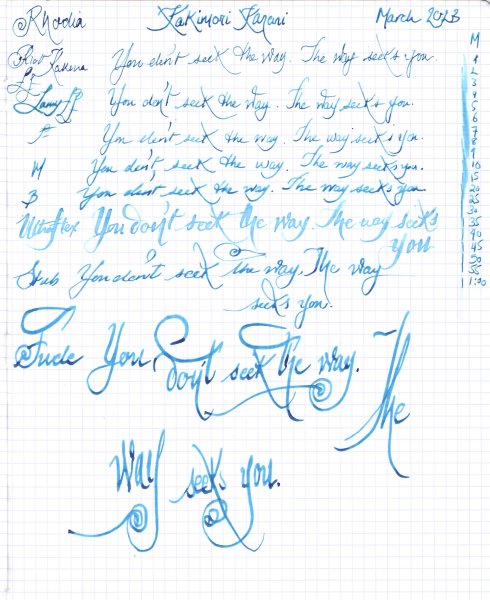 Rhodia Kakimori Karari March 2023
Pilot Kakuno EF You don't seek the way. The way seeks you.
Lamy EF You don't seek the way. The way seeks you.
F You don't seek the way. The way seeks you.
M You don't seek the way. The way seeks you.
B You don't seek the way. The way seeks you
Ultraflex You don't seek the way. The way seeks
you
Stub You don't seek the way. The way
seeks you.
Fude You don't seek the way.
The
way seeks you.
M
1
2
3
4
5
6
7
8
9
10
15
20
25
30
35
40
45
50
55
1:00